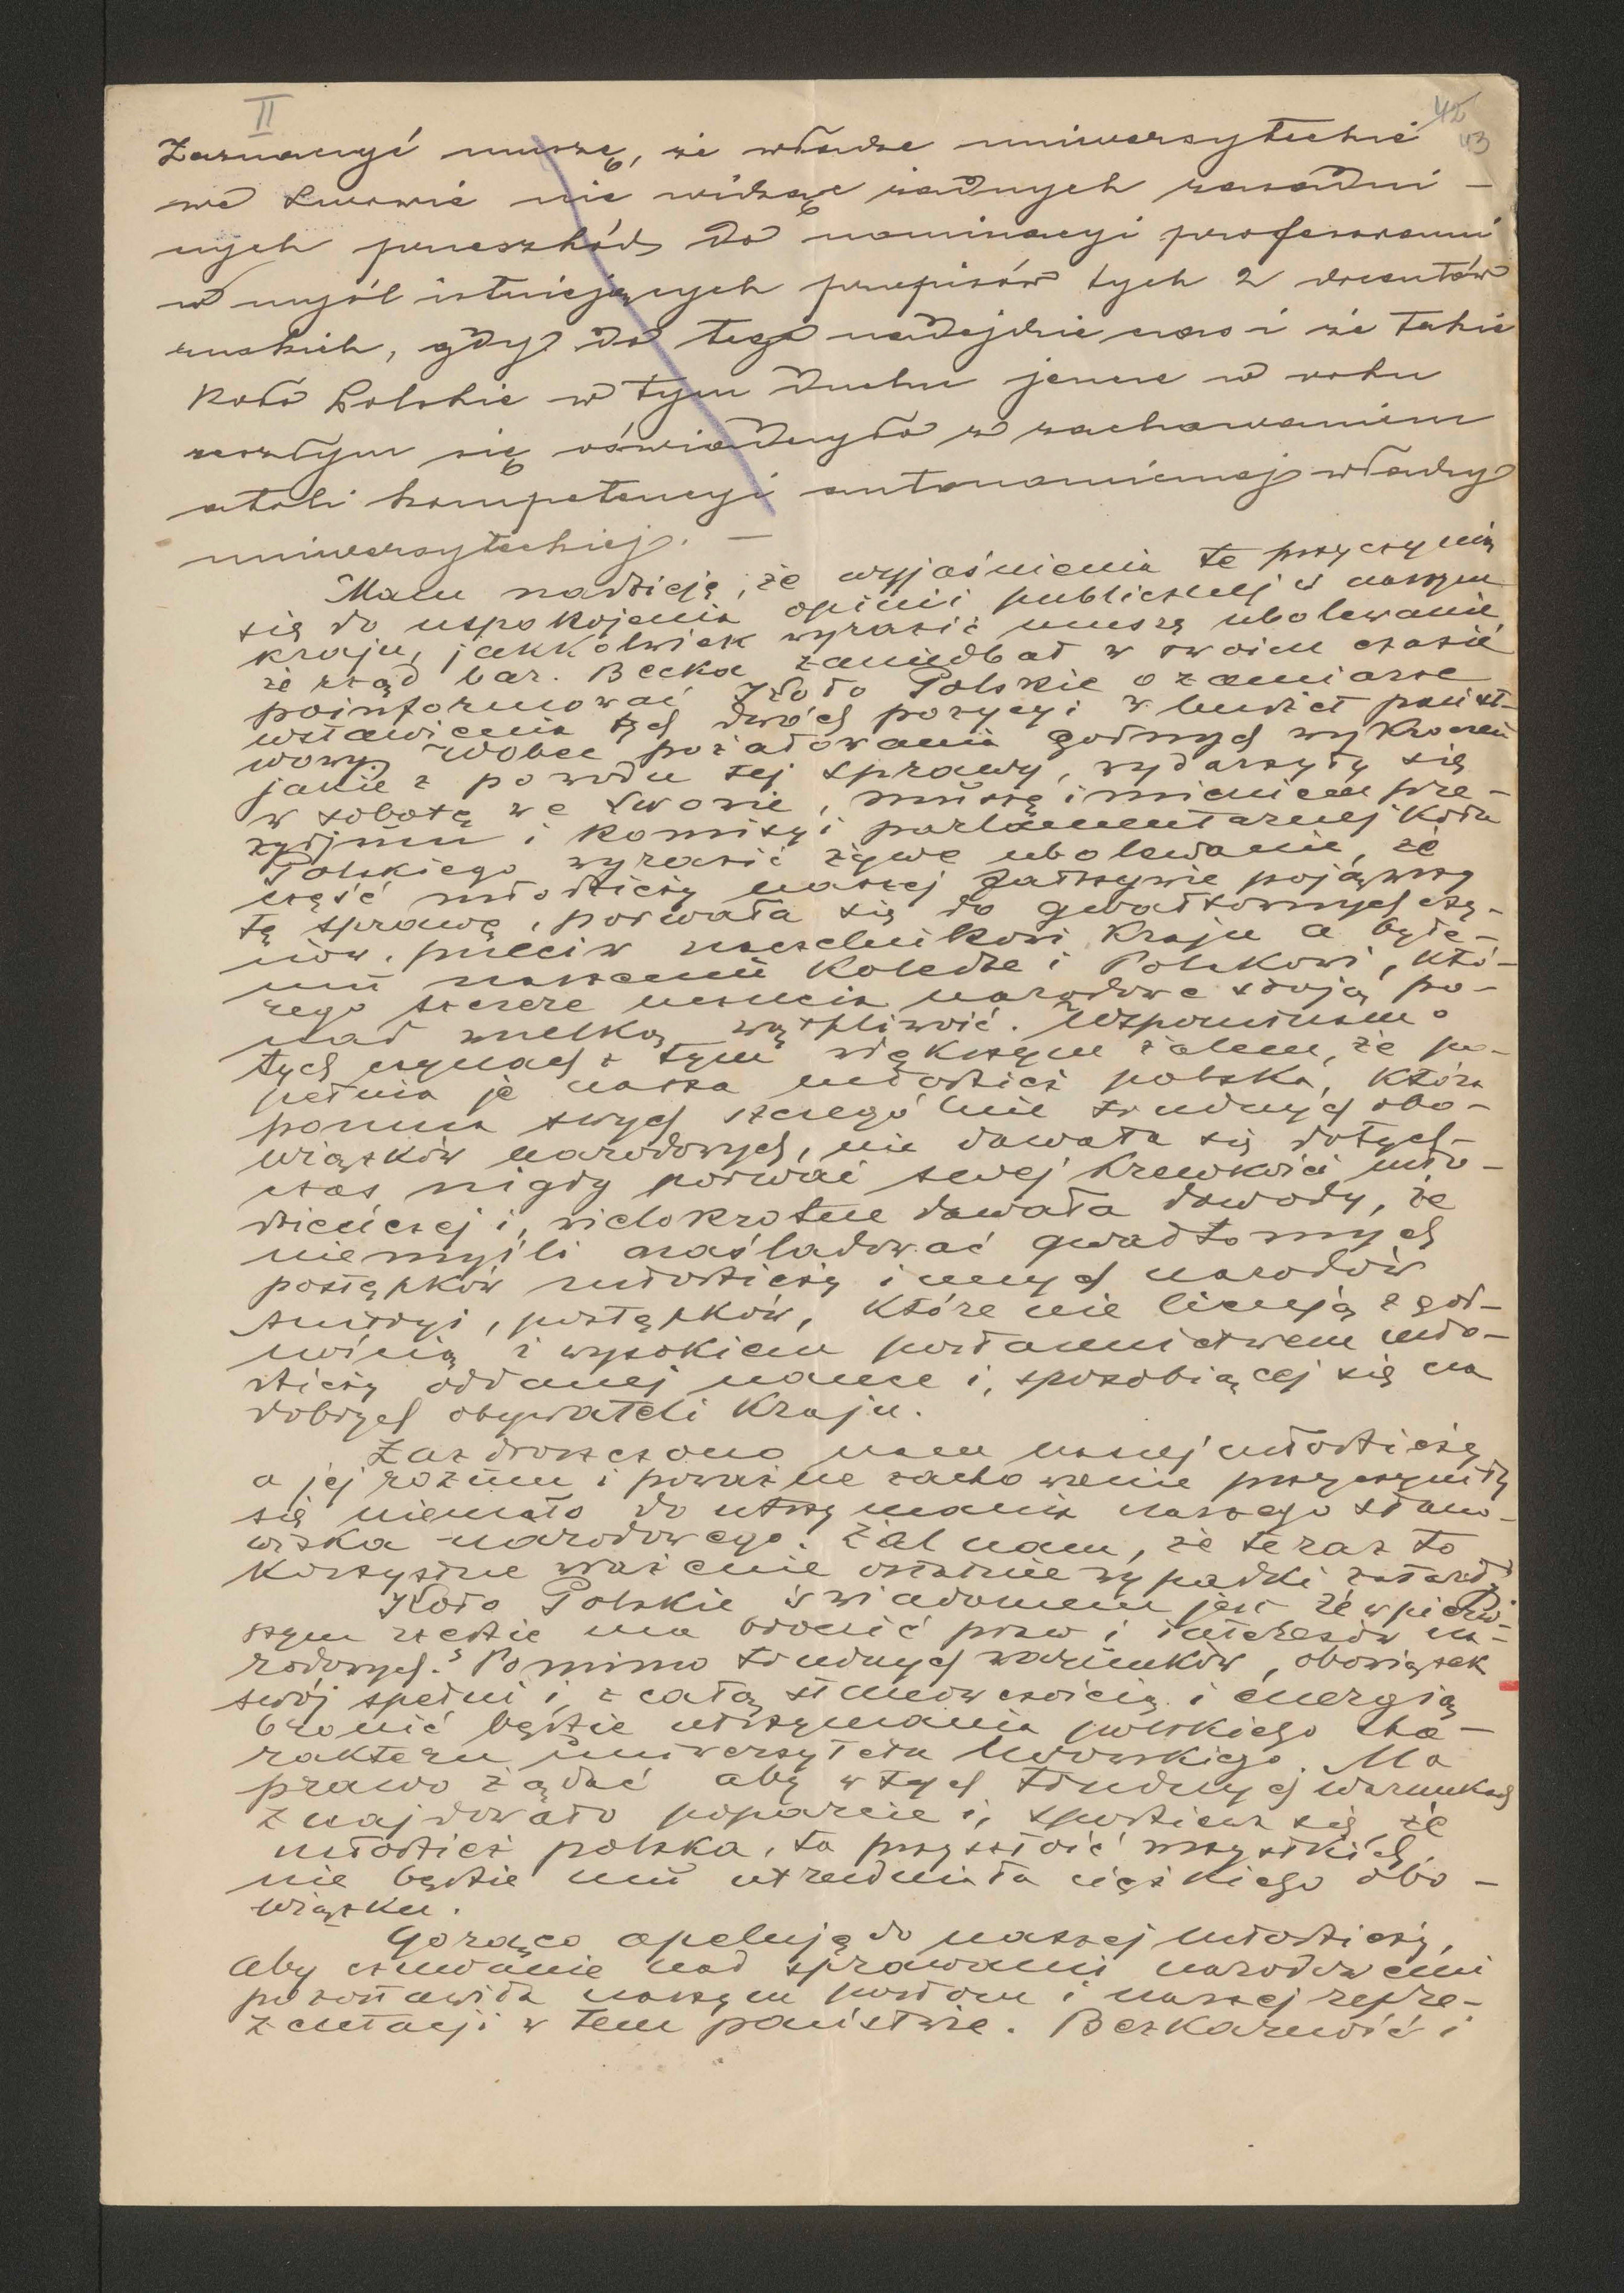 II
42
43
Zaznaczyć muszę, że władze uniwersyteckie
we Lwowie nie widzą żadnych zasadni-
czych przeszkód do nominacyi profesorami
w myśl istniejących przepisów tych 2 docentów
ruskich, gdy do tego nadejdzie czas i że także
Koło Polskie w tym duchu jeszcze w roku
zeszłym się oświadczyło z zachowaniem
atoli kompetencyi autonomicznej władzy
uniwersyteckiej. —
Mam nadzieję, że wyjaśnienia te przyczynią
się do uspokojenia opinii publicznej w naszym
kraju, jakkolwiek wyrazić muszę ubolewanie
że rząd bar. Becka zaniedbał w swoim czasie
poinformować Koło Polskie o zamiarze
wstawienia tych dwóch pozycyi w budżet państ-
wowy. Wobec pożałowania godnych wykroczeń
jakie z powodu tej sprawy, wydarzyły się
w sobotę we Lwowie, muszę imieniem pre-
zydjum i komisyi parlamentarnej Koła
Polskiego wyrazić żywe ubolewanie, że
część młodzieży naszej fałszywie pojąwszy
tę sprawę, porwała się do gwałtownych czy-
nów, przeciw naczelnikowi Kraju a byłe-
mu naszemu Koledze i Polakowi, któ-
rego szczere uczucia narodowe stoją po-
nad wszelką wątpliwość. Wspominam o
tych czynach z tym większym żalem, że po-
pełnia je nasza młodzież polska, która
pomna swych szczególnie trudnych obo-
wiązków narodowych, nie dawała się dotych-
czas nigdy porwać swej krewkości mło-
dzieńczej i, wielokrotne dawała dowody, że
nie myśli naśladować gwałtownych
postępków młodzieży innych narodów
Austryi, postępków, które nie licują z god-
nością i wysokiem posłannictwem mło-
dzieży oddanej nauce i, sposobiącej się na
dobrych obywateli Kraju.
Zazdroszczono nam naszej młodzieży
a jej rozum i poważne zachowanie przyczyniły
się niemało do utrzymania naszego stano-
wiska narodowego. Żal nam, że teraz to
korzystne wrażenie ostatnie wypadki zatarły
Koło Polskie świadomem jest że w pierw-
szym rzędzie ma bronić praw i interesów na-
rodowych. Pomimo trudnych warunków, obowiązek
swój spełni i, z całą stanowczością i energią
bronić będzie utrzymania polskiego cha-
rakteru uniwersytetu lwowskiego. Ma
prawo żądać aby w tych trudnych warunkach
znajdowało poparcie i, spodziewa się, że
młodzież polska, ta przyszłość wszystkich
nie będzie mu utrudniała ciężkiego obo-
wiązku.
Gorąco apeluję do naszej młodzieży,
aby czuwanie nad sprawami narodowemi
pozostawiła naszym posłom i naszej repre-
zentacji w tem państwie. Bezkarność i